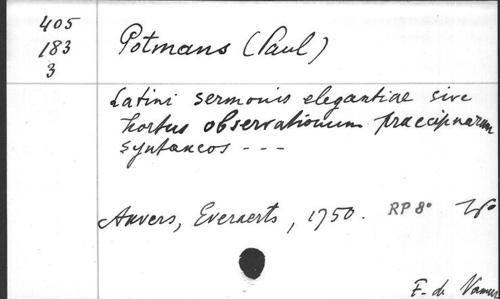 405
183
3
Potmans (Paul)
Latini sermonis elegantiae sive
hortus observationum praecipuarum
syntaxeos - - -
Anvers, Everaerts, 1750. RP 8°
F. de